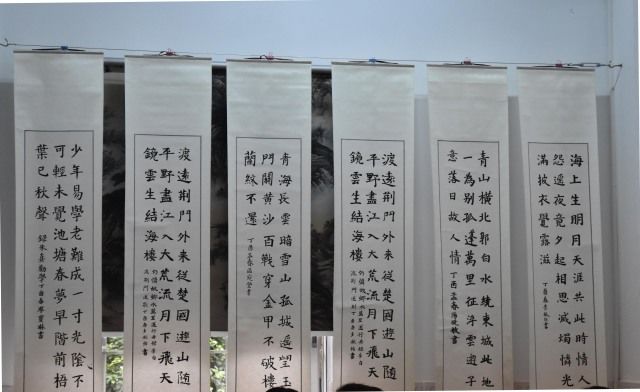 海上生明月天涯共此時情人
怨遥夜竟夕起相思滅燭憐光
滿披衣覺露滋
青山橫北郭白水繞東城此地
一為別孤蓬萬里征浮雲遊子
意落日故人情 丁酉孟春
渡遠荆門外來從楚國遊山随
平野盡江入大荒流月下飛天
鏡雲生結海樓
青海長雲暗雪山孤城遥望玉
門關黄沙百戰穿金甲不破樓
蘭終不還 丁酉孟春
渡遠荆門外來從楚國遊山随
平野盡江入大荒流月下飛天
鏡雲生結海樓
少年易學老難成一寸光陰不
可輕未覺池塘春夢早階前梧
葉已秋聲 錄朱熹勸學丁酉春